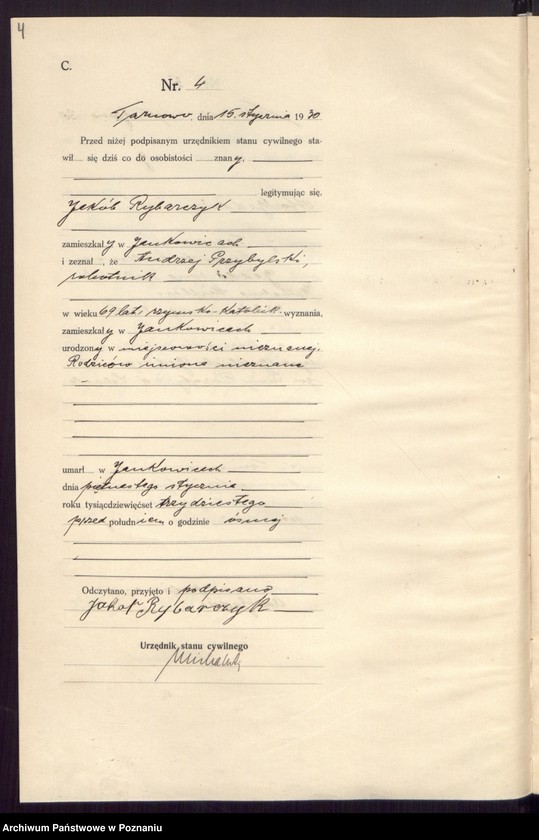 4
C.
Nr. 4
Tarnowo, dnia 15. stycznia 1930
Przed niżej podpisanym urzędnikiem stanu cywilnego sta-
wił się dziś co do osobistości znany.
legitymując się.
Jakób Rybarczyk
zamieszkały w Jankowicach
i zeznał, że Andrzej Przybylski,
robotnik
w wieku 69 lat, rzymsko-katolik. wyznania,
zamieszkały w Jankowicach
urodzony w miejscowości nieznanej.
Rodziców imiona nieznane
umarł w Jankowicach
dnia piętnastego stycznia
roku tysiącdziewięćset trzydziestego
przed południem o godzinie ósmej
Odczytano, przyjęto i podpisano
Jakob Rybarczyk
Urzędnik stanu cywilnego
Archiwum Państwowe w Poznaniu